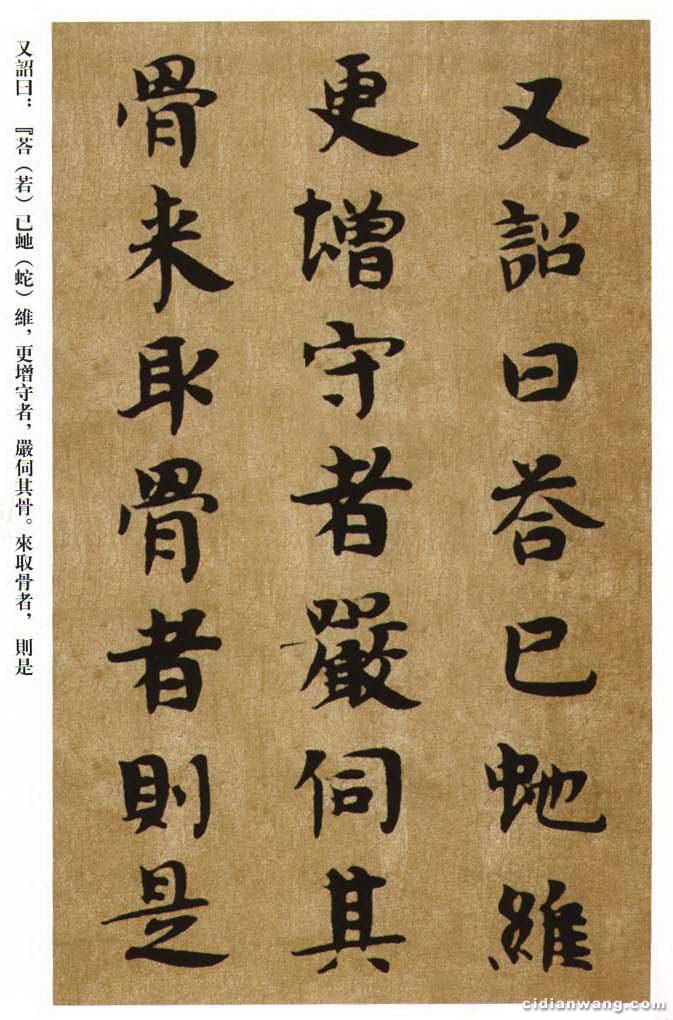 又詔曰荅已虵維
更增守者嚴伺其
骨来取骨者則是
又詔曰：『荅（若）已虵（蛇）維，更增守者，嚴伺其骨。來取骨者，則是
cidianwang.com